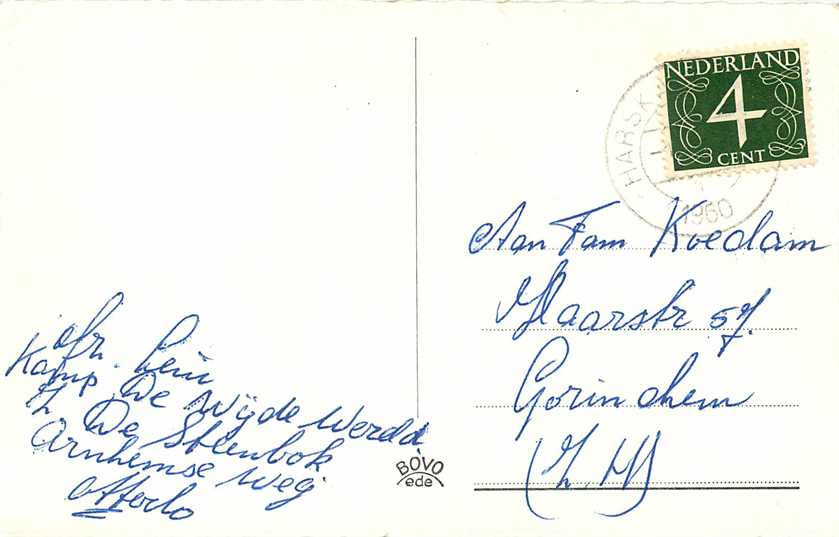 NEDERLAND
4
CENT
HARSK
1960
Aan Fam Koedam
Haarstr 57.
Gorinchem
(Z.H)
afz. Leni
Kamp De Wijde Wereld
h. De Steenbok
Arnhemse weg
Otterlo
BOVO
ede